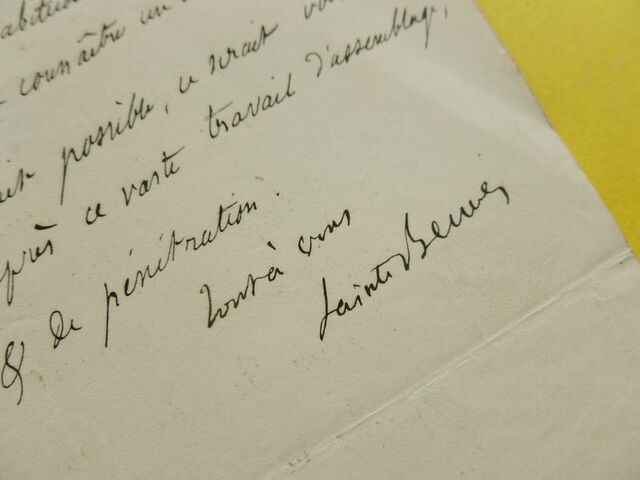 connaître un
possible, ce serait vous
après ce vaste travail d'assemblage,
& de pénétration.
Tout à vous
Sainte Beuve